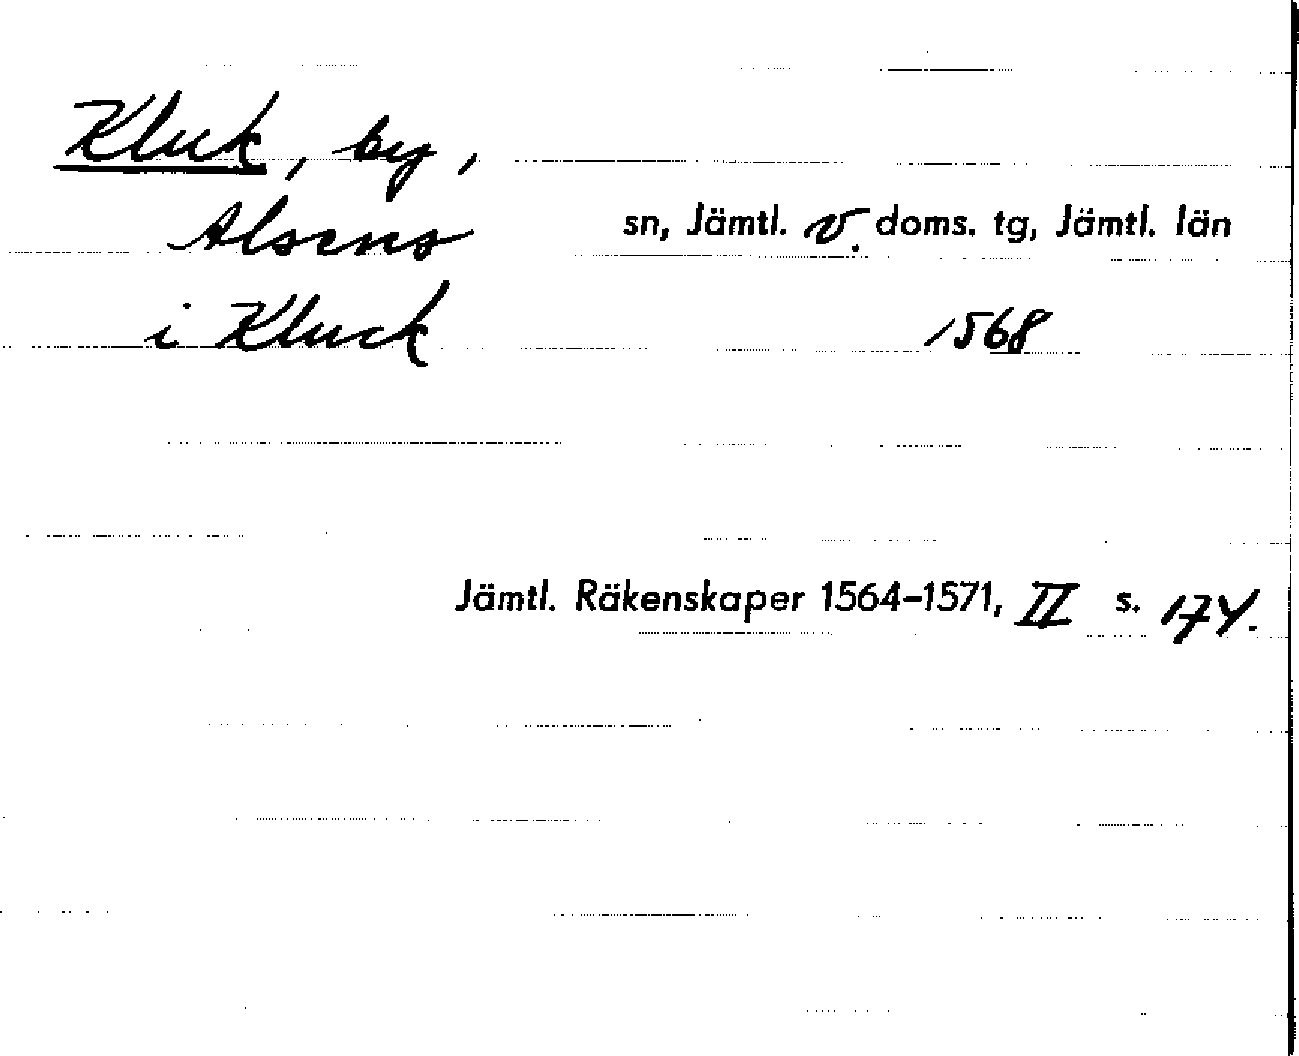 Kluk, by,
Alsens sn, Jämtl. v. doms. tg, Jämtl. län
i Kluck 1568
Jämtl. Räkenskaper 1564-1571, II s. 174.